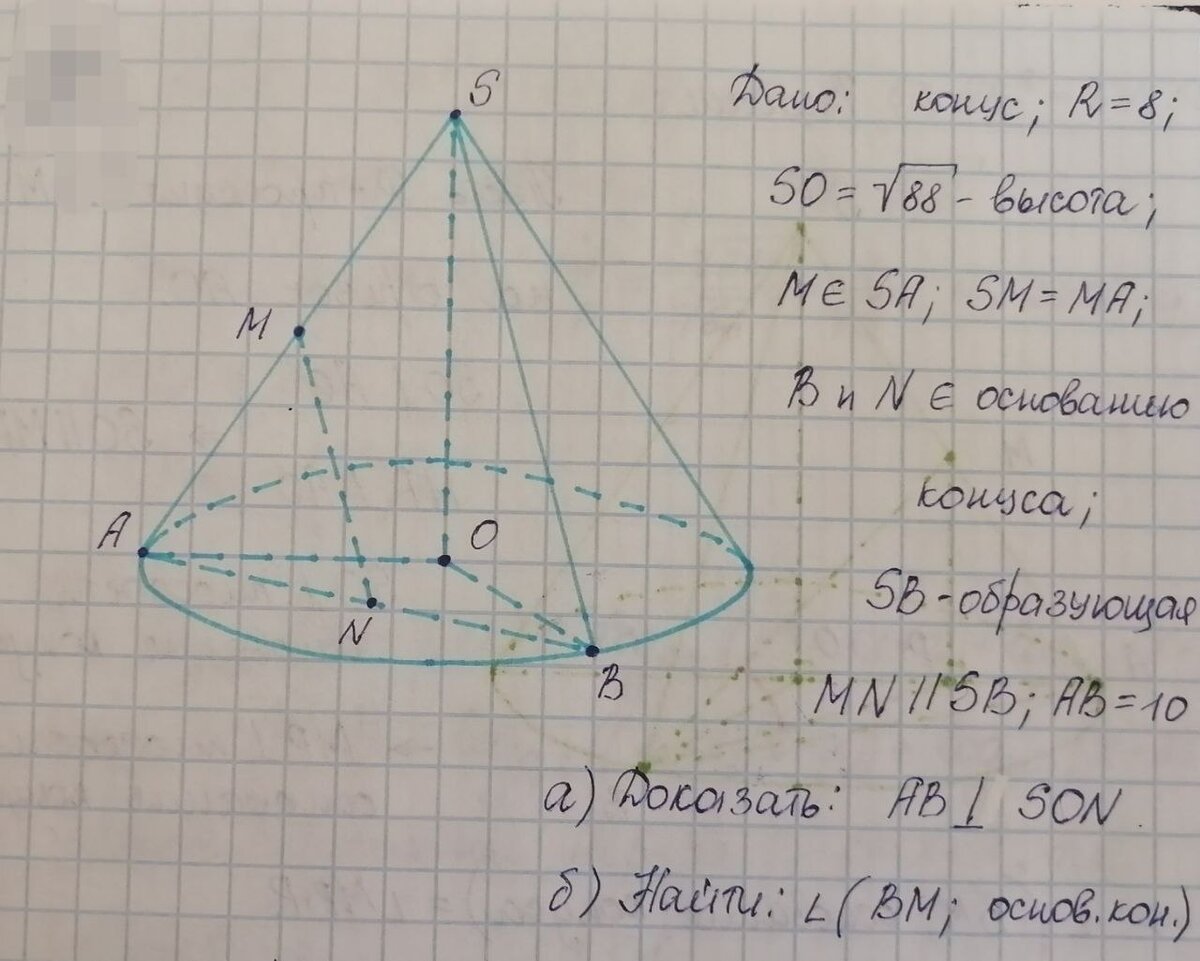 S
Дано: конус; R = 8;
SO = √88 - высота;
M ∈ SA; SM = MA;
M
B и N ∈ основанию
конуса;
A
O
SB - образующая
N
B
MN || SB; AB = 10
а) Доказать: AB ⊥ SON.
б) Найти: ∠(BM; основ. кон.)